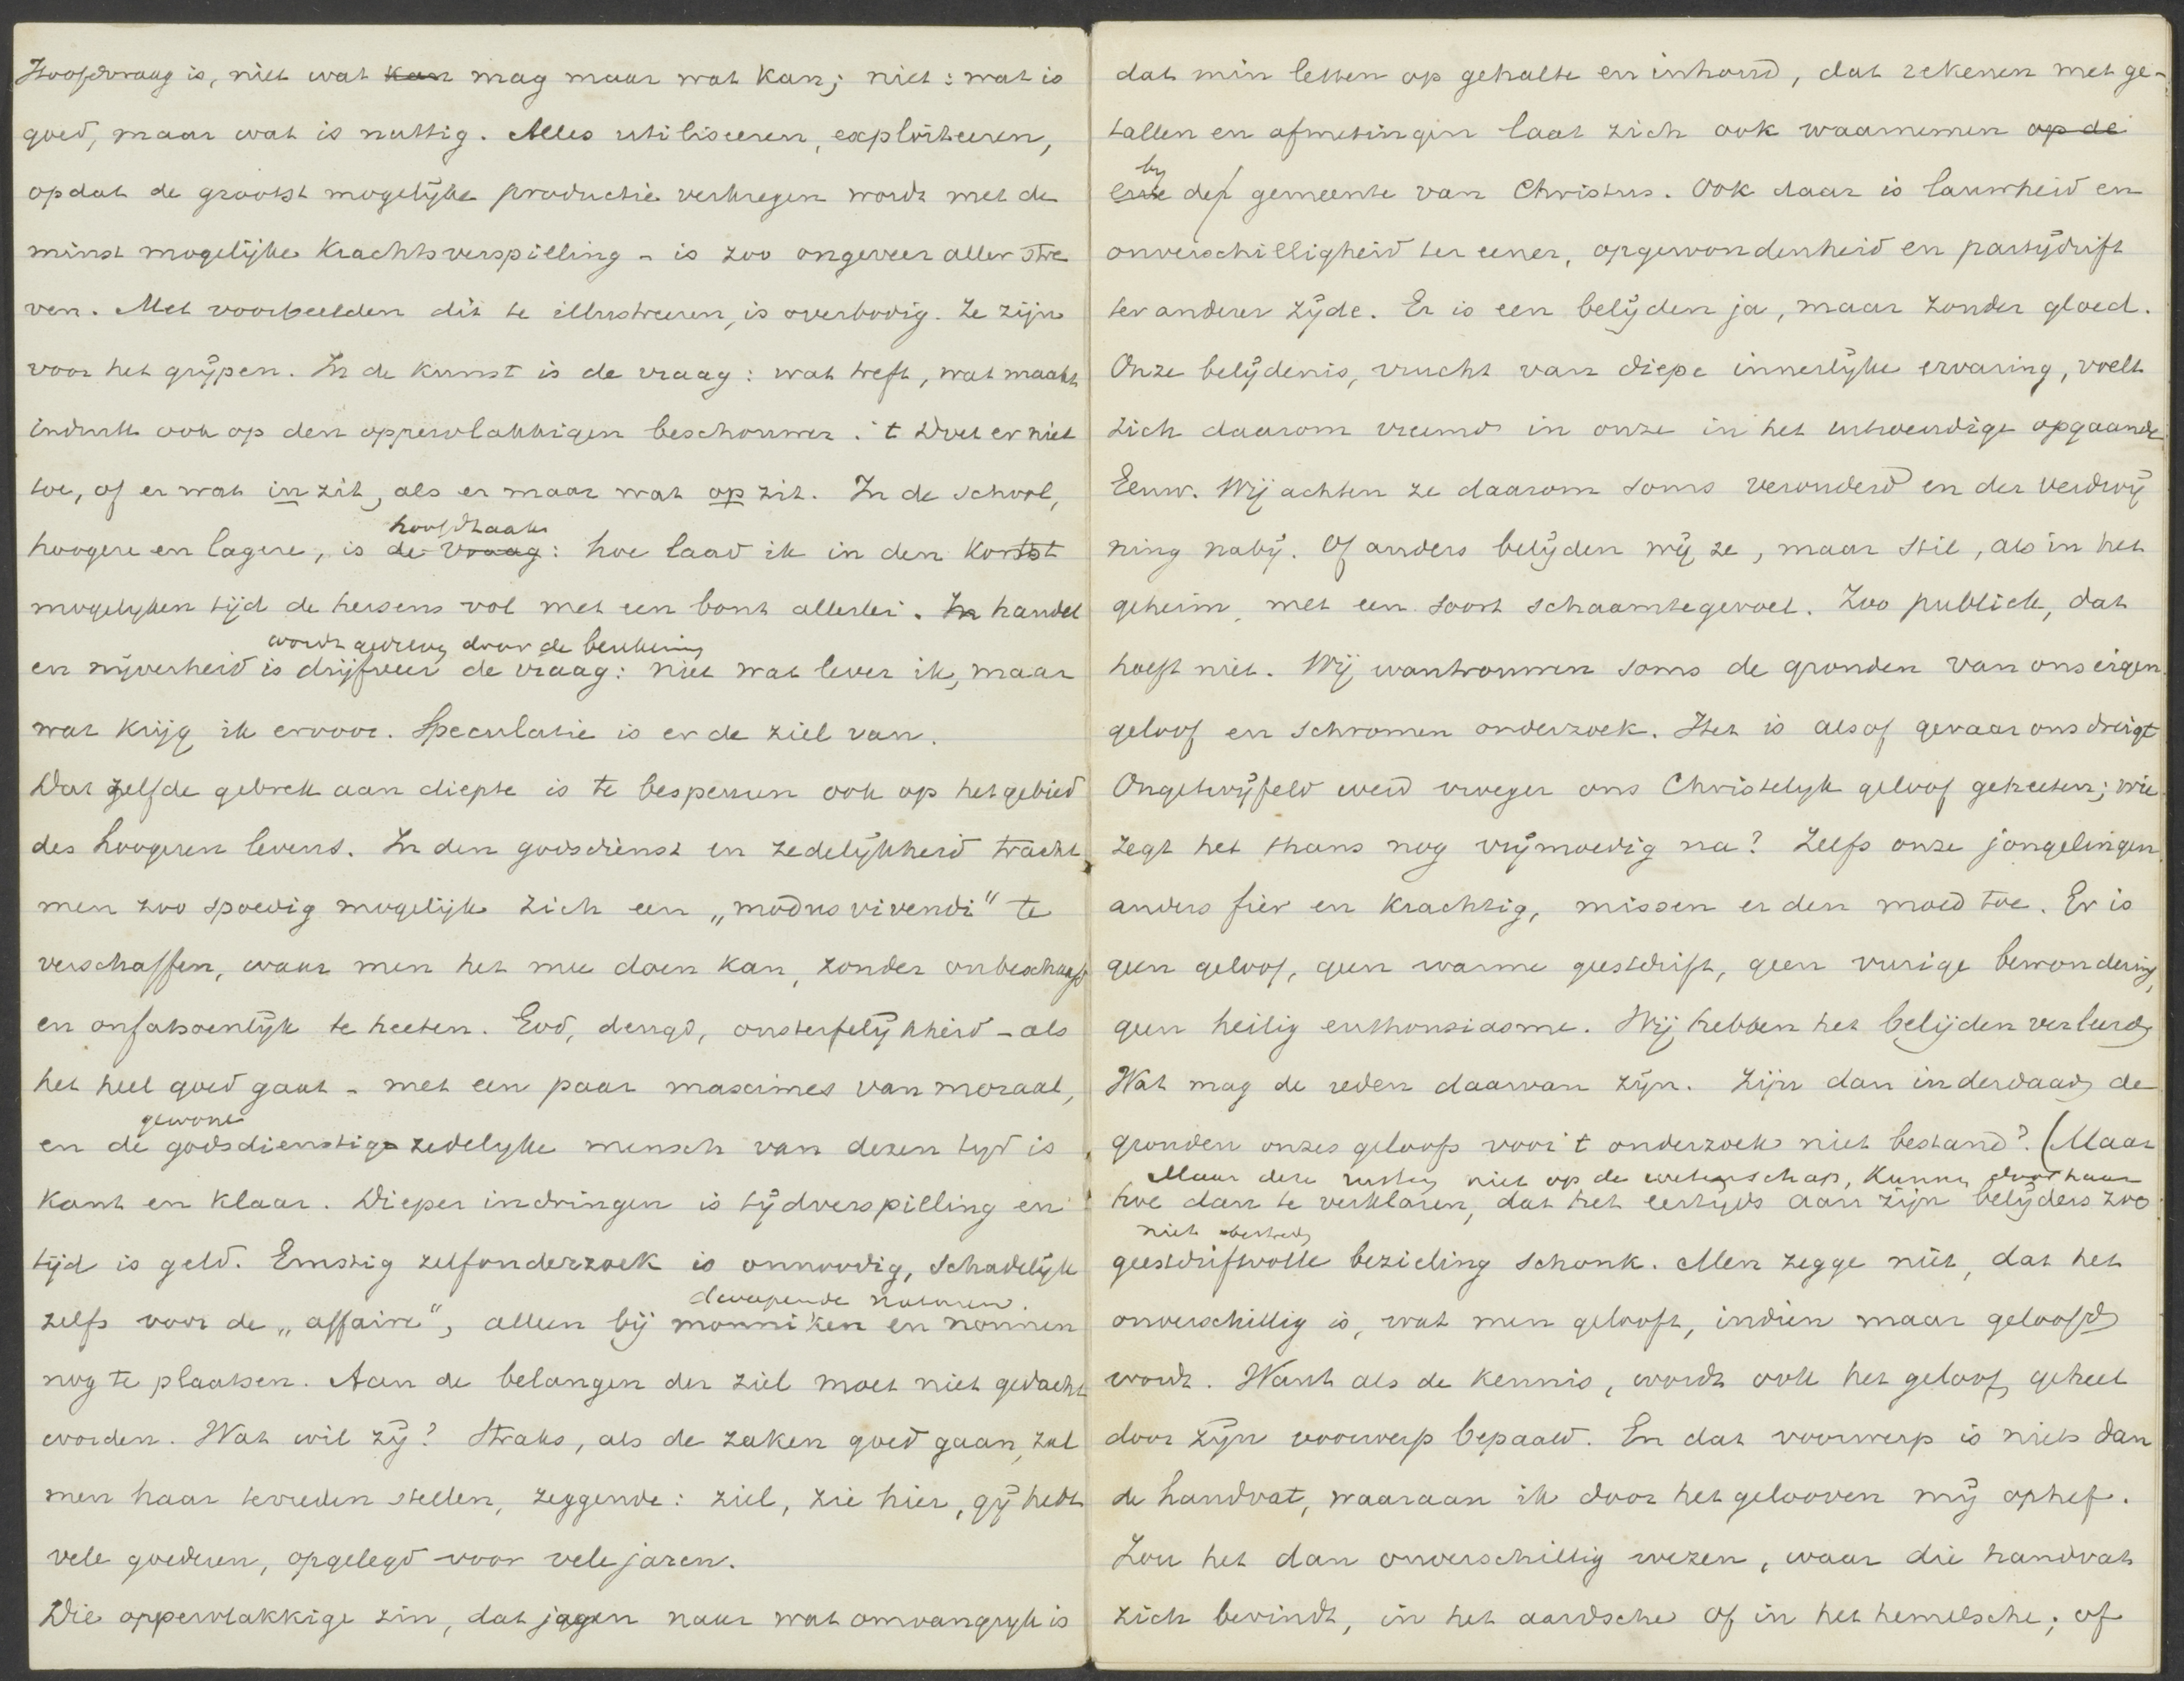 Hoofdvraag is, niet wat kan mag maar wat kan; niet: wat is
goed, maar wat is nuttig. Alles utiliseeren, exploiteeren,
opdat de grootst mogelijke productie verkregen wordt met de
minst mogelijke krachtsverspilling - is zoo ongeveer aller stre
ven. Met voorbeelden dit te illustreeren, is overbodig. Ze zijn
voor het grijpen. In de kunst is de vraag: wat treft, wat maakt
indruk ook op den oppervlakkigen beschouwer. 't Doet er niet
toe, of er wat in zit, als er maar wat op zit. In de school,
hoofdtaak
hoogere en lagere, is de vraag: hoe laad ik in den kortst
mogelijken tijd de hersens vol met een bont allerlei. In handel
wordt door de
en nijverheid is drijfveer de vraag: niet wat lever ik, maar
wat krijg ik ervoor. Speculatie is er de ziel van.
Dat zelfde gebrek aan diepte is te bespeuren ook op het gebied
des hoogeren levens. In den godsdienst en zedelijkheid tracht
men zoo spoedig mogelijk zich een „modus vivendi" te
verschaffen, waar men het mee doen kan, zonder onbeschaafd
en onfatsoenlijk te heeten. God, deugd, onsterfelijkheid - als
het heel goed gaat - met een paar maximes van moraal,
gewone
en de godsdienstig zedelijke mensch van dezen tijd is
kant en klaar. Dieper indringen is tijdverspilling en
tijd is geld. Ernstig zelfonderzoek is onnoodig, schadelijk
naturen.
zelfs voor de „affaire", alleen bij monniken en nonnen
nog te plaatsen. Aan de belangen der ziel moet niet gedacht
worden. Wat wil zij? Straks, als de zaken goed gaan, zal
men haar tevreden stellen, zeggende: ziel, zie hier, gij hebt
vele goederen, opgelegd voor vele jaren.
Die oppervlakkige zin, dat jagen naar wat omvangrijk is
dat min letten op gehalte en inhoud, dat rekenen met ge-
tallen en afmetingen laat zich ook waarnemen op de
by
erve der gemeente van Christus. Ook daar is lauwheid en
onverschilligheid ter eener, opgewondenheid en partijdrift
ter anderer zijde. Er is een belijden ja, maar zonder gloed.
Onze belijdenis, vrucht van diepe innerlijke ervaring, voelt
zich daarom vreemd in onze in het uitwendige opgaande
Eeuw. Wij achten ze daarom soms verouderd en der verdwij
ning nabij. Of anders belijden wij ze, maar stil, als in het
geheim, met een soort schaamtegevoel. Zoo publiek, dat
hoeft niet. Wij wantrouwen soms de gronden van ons eigen
geloof en schromen onderzoek. Het is alsof gevaar ons dreigt
Ongetwijfeld werd vroeger ons Christelijk geloof geheeten; wie
zegt het thans nog vrijmoedig na? Zelfs onze jongelingen
anders fier en krachtig, missen er den moed toe. Er is
geen geloof, geen warme geestdrift, geen vurige bewondering,
geen heilig enthousiasme. Wij hebben het belijden verleerd.
Wat mag de reden daarvan zijn. Zijn dan inderdaad de
gronden onzes geloofs voor 't onderzoek niet bestand? (Maar
Maar deze rusten niet op de wetenschap, kunnen door haar
hoe dan te verklaren, dat het eertijds aan zijn belijders zoo
niet
geestdriftvolle bezieling schonk. Men zegge niet, dat het
onverschillig is, wat men gelooft, indien maar geloofd
wordt. Want als de kennis, wordt ook het geloof geheel
door zijn voorwerp bepaald. En dat voorwerp is niets dan
de handvat, waaraan ik door het gelooven mij ophef.
Zou het dan onverschillig wezen, waar die handvat
zich bevindt, in het aardsche of in het hemelsche; of